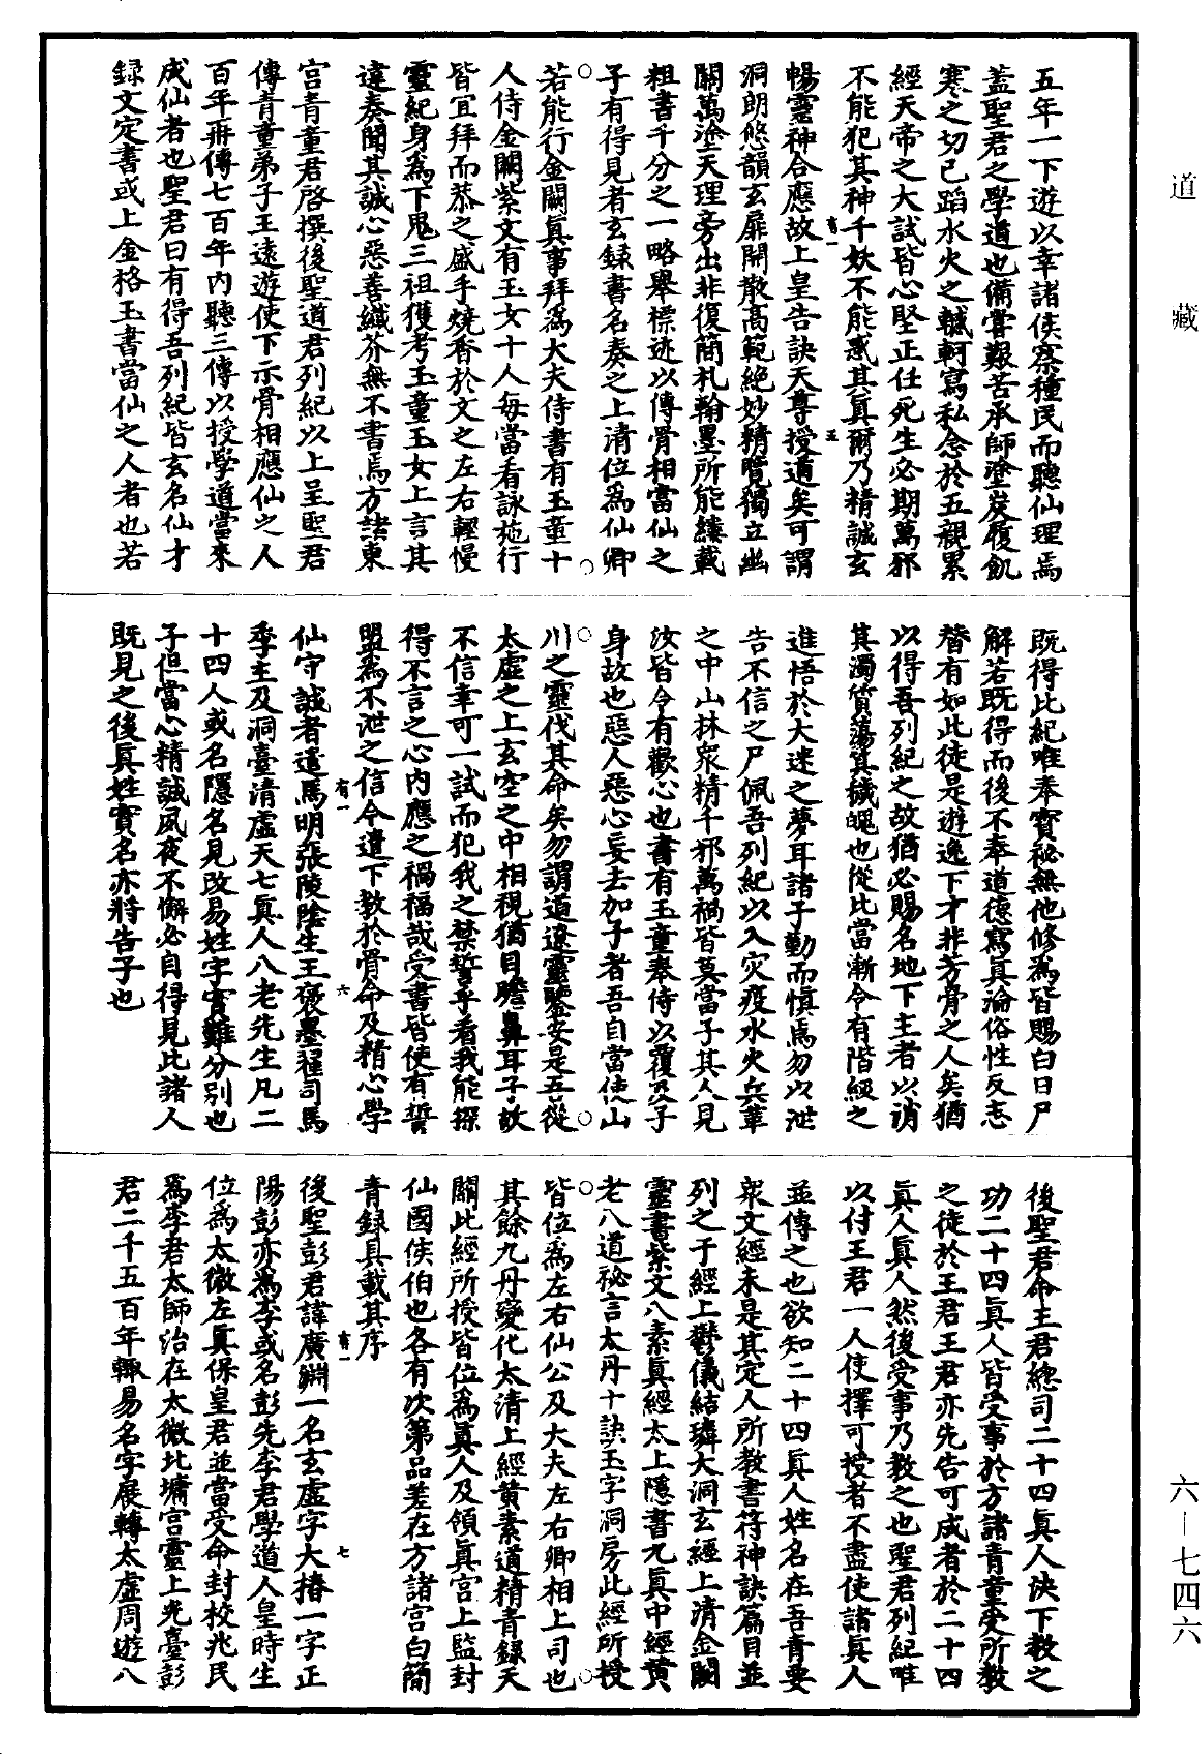 道藏
五年一下遊以幸諸侯察種民而聽仙理焉
蓋聖君之學道也備嘗艱苦承師塗炭腹飢
寒之切己蹈水火之轗軻寫私念於五親累
經天帝之大試皆心堅正任死生必期萬邪
不能犯其神千妖不能惑其真爾乃精誠玄
暢靈神合應故上皇告訣天尊授道矣可謂
有一
五
洞朗悠韻玄扉開散高範絶妙精覽獨立幽
關萬塗天理旁出非復簡札翰墨所能縷載
粗書千分之一略舉標迹以傳骨相當仙之
子有得見者玄錄書名奏之上清位爲仙卿
若能行金闕真事拜爲大夫侍書有玉童十
人侍金闕紫文有玉女十人每當看詠施行
皆宜拜而恭之盛手燒香於文之左右輕慢
靈紀身爲下鬼三祖獲考玉童玉女上言其
違奏聞其誠心惡善纖芥無不書焉方諸東
宮青童君啓撰後聖道君列紀以上呈聖君
傳青童弟子王遠遊使下示骨相應仙之人
百年冊傳七百年內聽三傳以授學道當來
成仙者也聖君曰有得吾列紀皆玄名仙才
錄文定書或上金格玉書當仙之人者也若
既得此紀唯奉寶祕無他修爲皆賜白日尸
解若既得而後不奉道德寫真淪俗性反志
替有如此徒是遊逸下才非芳骨之人矣猶
以得吾列紀之故猶必賜名地下主者以消
其濁質蕩其穢魄也從此當漸令有階級之
進悟於大迷之夢耳諸子勤而愼焉勿以泄
告不信之尸佩吾列紀以入灾疫水火兵革
之中山林衆精千邪萬禍皆莫當子其人見
汝皆令有歡心也書有玉童奉侍以覆及子
身故也惡人惡心妄去加子者吾自當使山
川之靈伐其命矣勿謂道遼靈鑒安是五從
太虛之上玄空之中相視猶目瞻鼻耳子故
不信幸可一試而犯我之禁誓乎看我能探
得不言之心內應之禍福哉受書皆使有誓
盟爲不泄之信令遺下教於骨命及精心學
有一
六
仙守誠者遣馬明張陵陰生王褒墨翟司馬
季主及洞臺清虛天七真人八老先生凡二
十四人或名隱名見改易姓字實難分別也
子但當心精誠夙夜不懈必自得見此諸人
既見之後真姓實名亦將告子也
後聖君命王君總司二十四真人決下教之
功二十四真人皆受事於方諸青童受所教
之徒於王君王君亦先告可成者於二十四
真人真人然後受事乃教之也聖君列紀唯
以付王君一人使擇可授者不盡使諸真人
並傳之也欲知二十四真人姓名在吾青要
衆文經末是其定人所教書符神訣篇目並
列之于經上鬱儀結璘大洞玄經上清金闕
靈書紫文八素真經太上隱書九真中經黃
老八道祕言太丹十訣玉字洞房此經所授
皆位爲左右仙公及大夫左右卿相上司也
其餘九丹變化太清上經黃素道精青錄天
關此經所授皆位爲真人及領真宮上監封
仙國侯伯也各有次第品差在方諸宮白簡
青錄具載其序
有一
七
後聖彭君諱廣淵一名玄虛字大椿一字正
陽彭亦爲李或名彭先李君學道人皇時生
位爲太微左真保皇君並當受命封校兆民
爲李君太師治在太微北墉宮靈上光臺彭
君二千五百年輙易名字展轉太虛周遊八
六—七四六